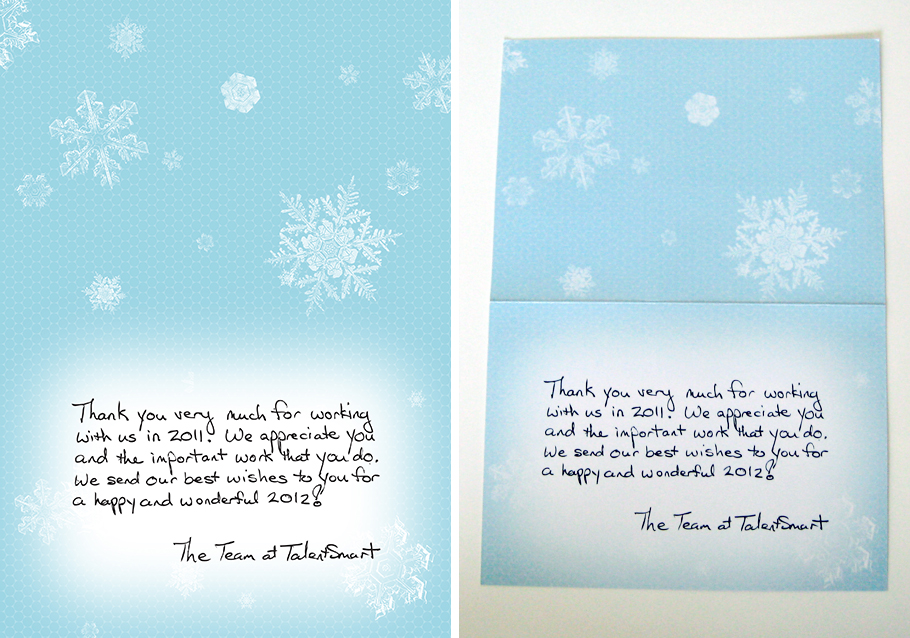 Thank you very much for working
with us in 2011. We appreciate you
and the important work that you do.
We send our best wishes to you for
a happy and wonderful 2012!
The Team at TalentSmart
Thank you very much for working
with us in 2011. We appreciate you
and the important work that you do.
We send our best wishes to you for
a happy and wonderful 2012!
The Team at TalentSmart